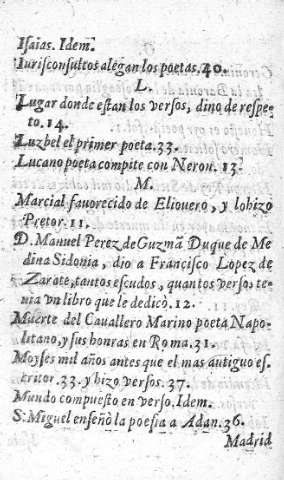 Isaias. Idem.
Iurisconsultos alegan los poetas, 40.
L.
Lugar donde estan los versos, dino de respe-
to. 14.
Luzbel el primer poeta. 33.
Lucano poeta compite con Neron. 13.
M.
Marcial fauorecido de Eliouero, y lo hizo
Pretor. 11.
D. Manuel Perez de Guzmã Duque de Me
dina Sidonia, dio a Françisco Lopez de
Zarate, tantos escudos, quantos versos te-
nia vn libro que le dedicò. 12.
Muerte del Cauallero Marino poeta Napo-
litano, y sus honras en Roma. 31.
Moyses mil años antes que el mas antiguo es.
critor. 33. y hizo versos. 37.
Mundo compuesto en verso. Idem.
S. Miguel enseñò la poesia a Adan. 36.
Madrid